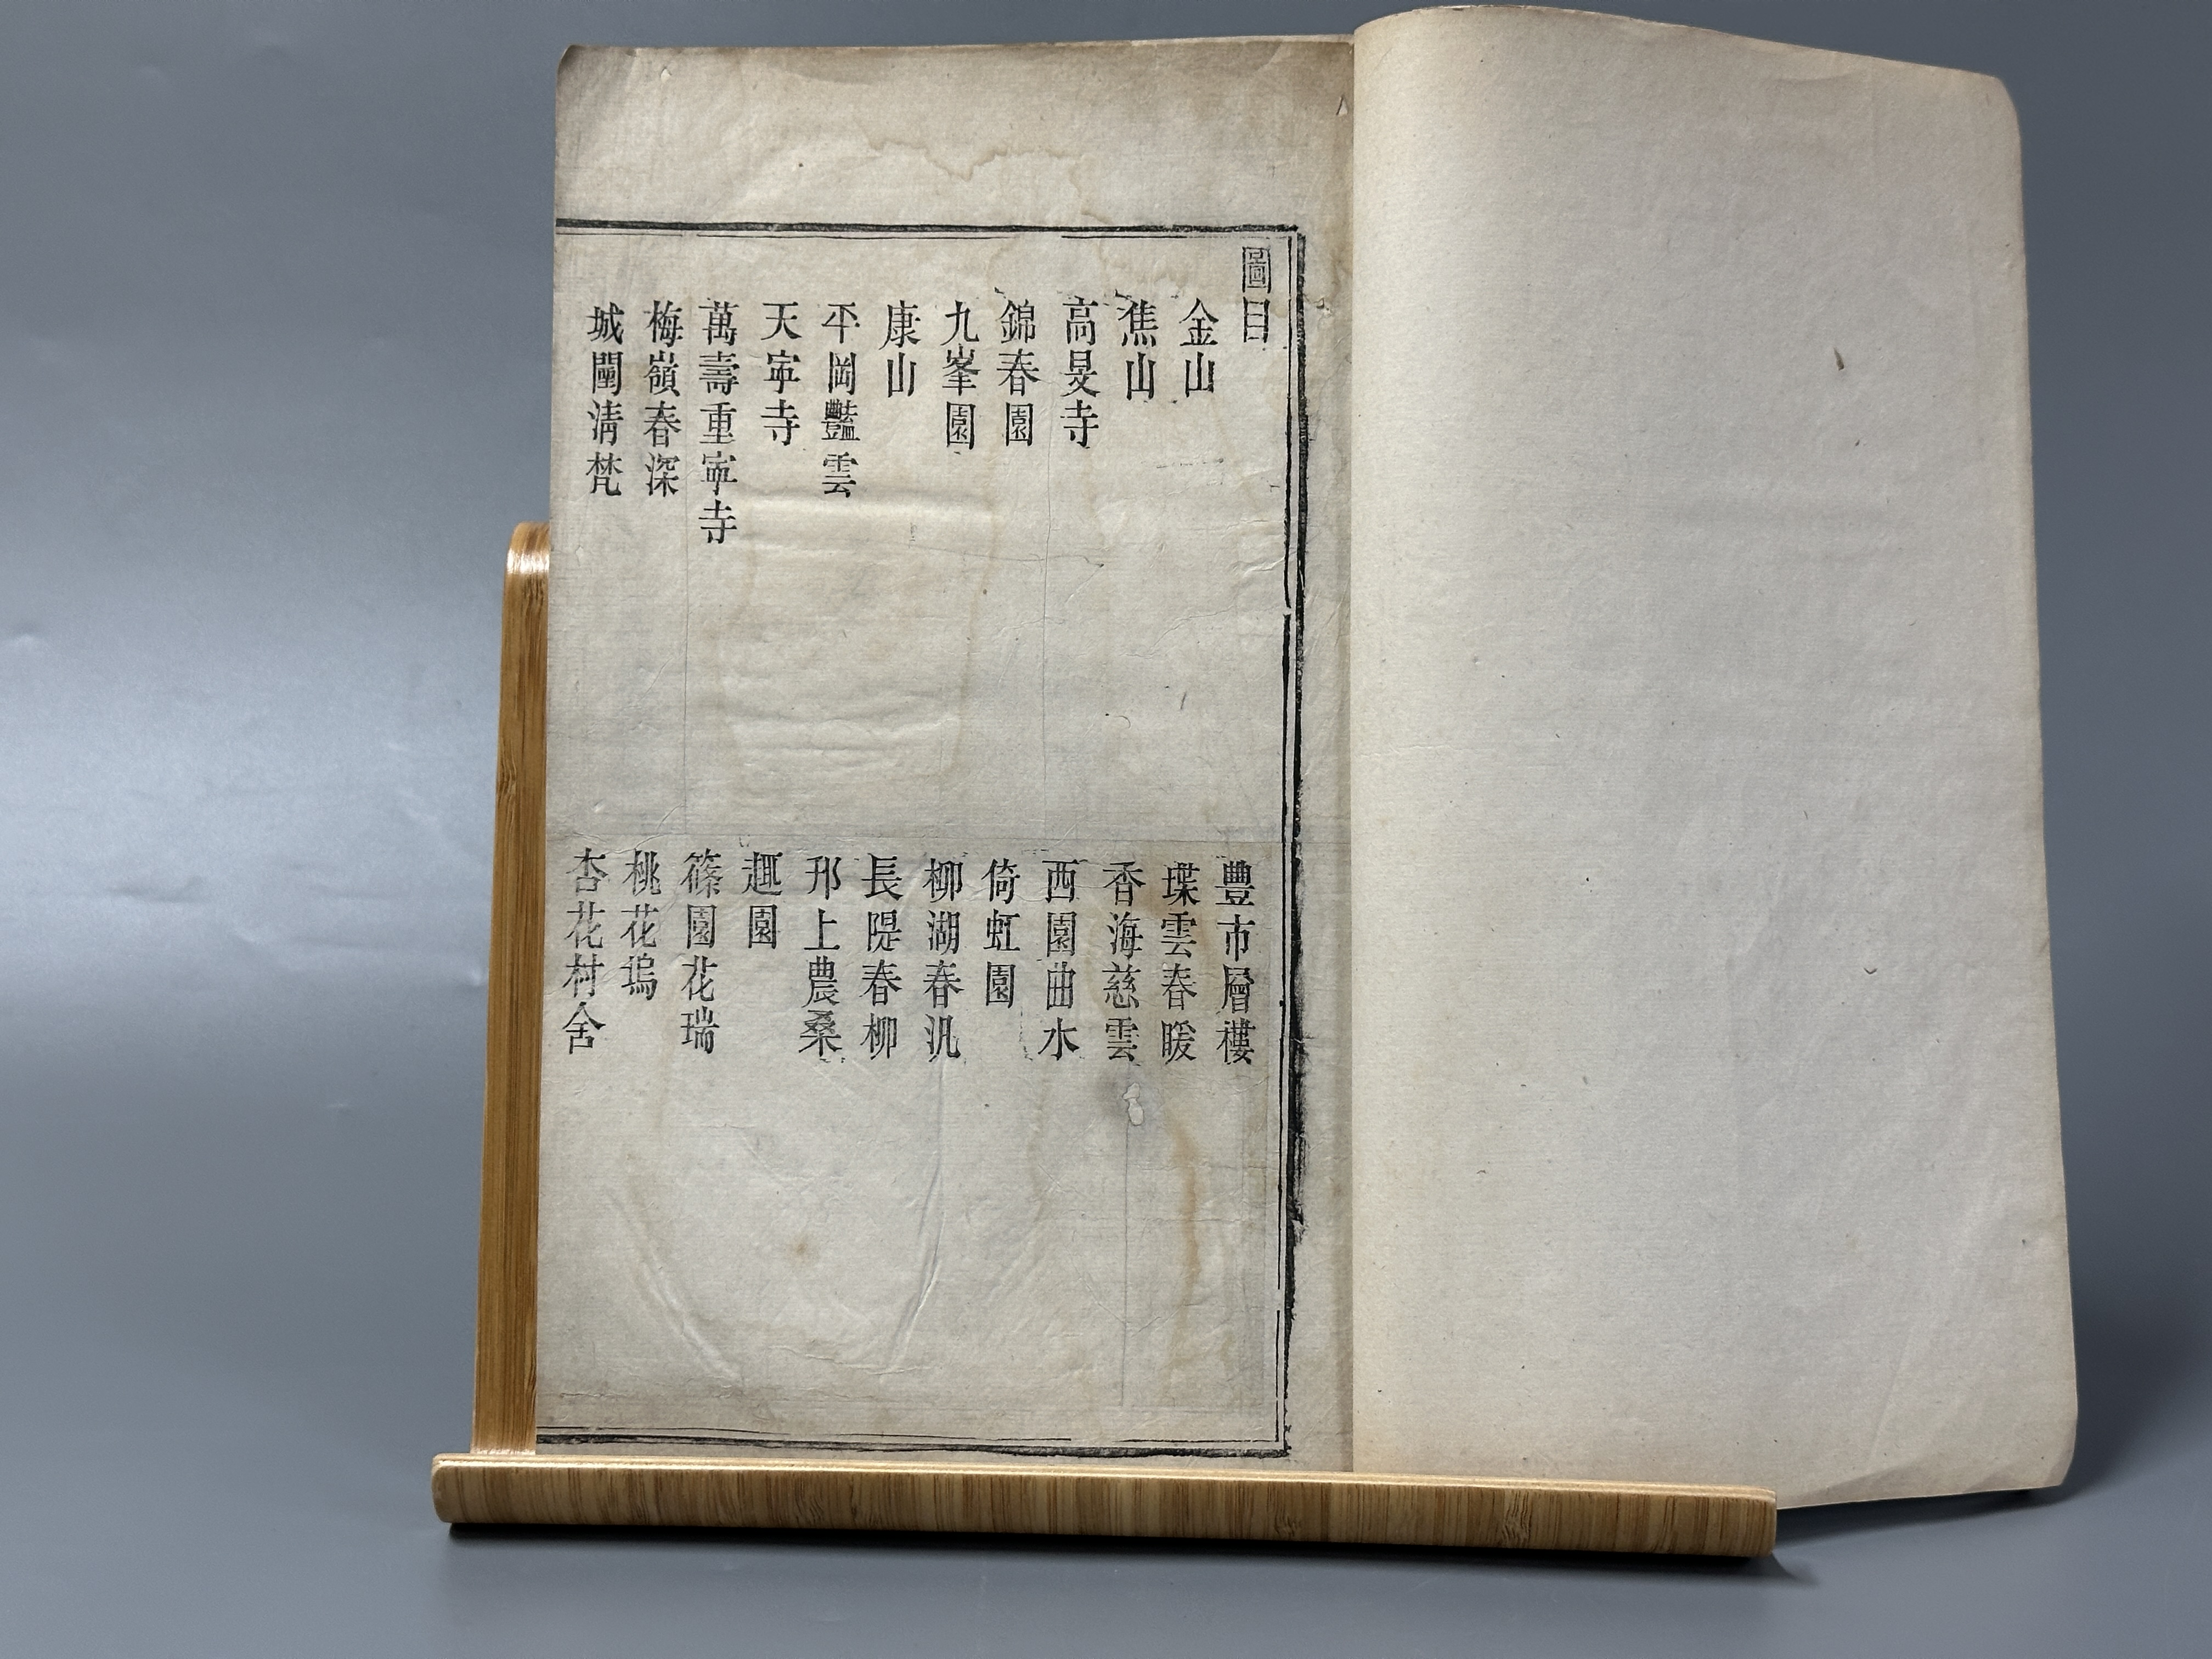 圖目
金山
焦山
高旻寺
錦春園
九峯園
康山
平岡豔雲
天寧寺
萬壽重寧寺
梅嶺春深
城闉清梵
豐市層樓
堞雲春暖
香海慈雲
西園曲水
倚虹園
柳湖春汎
長隄春柳
邗上農桑
趣園
篠園花瑞
桃花塢
杏花村舍